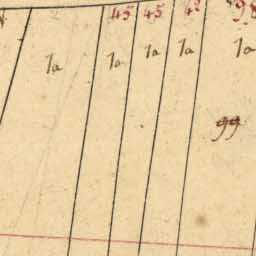 45 45
1a 1a 1a 1a 1a
99